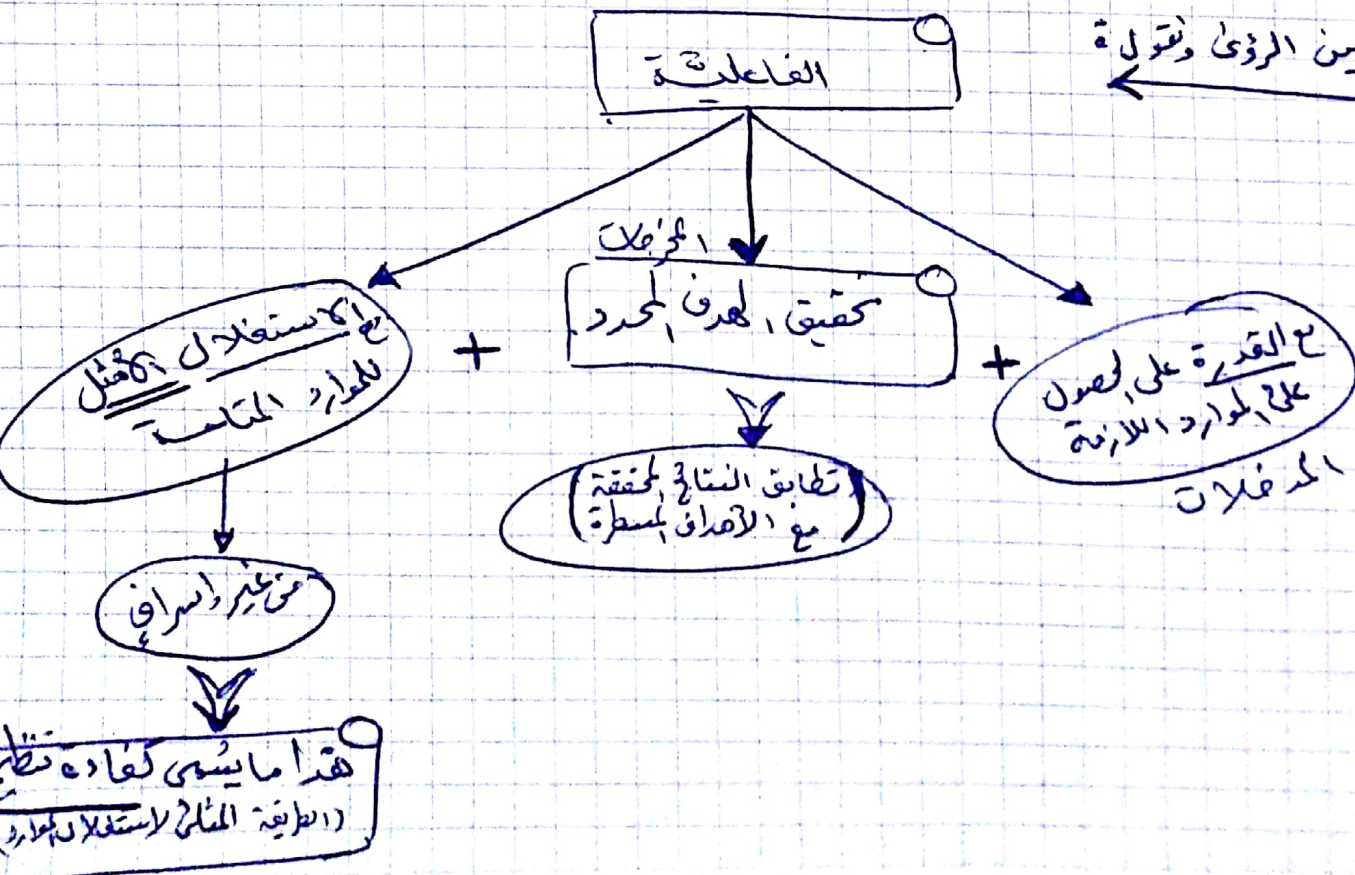 بين الرؤى ونقول:
الفاعلية
المخرجات
تحقيق الهدف المحدد
مع القدرة على الحصول
على الموارد اللازمة
المدخلات
+
+
مع الاستغلال الأمثل
للموارد المتاحة
(تطابق النتائج المحققة
مع الأهداف المسطرة)
من غير إسراف
هذا ما يسمى كفاءة
(الطريقة المثلى لاستغلال الموارد)